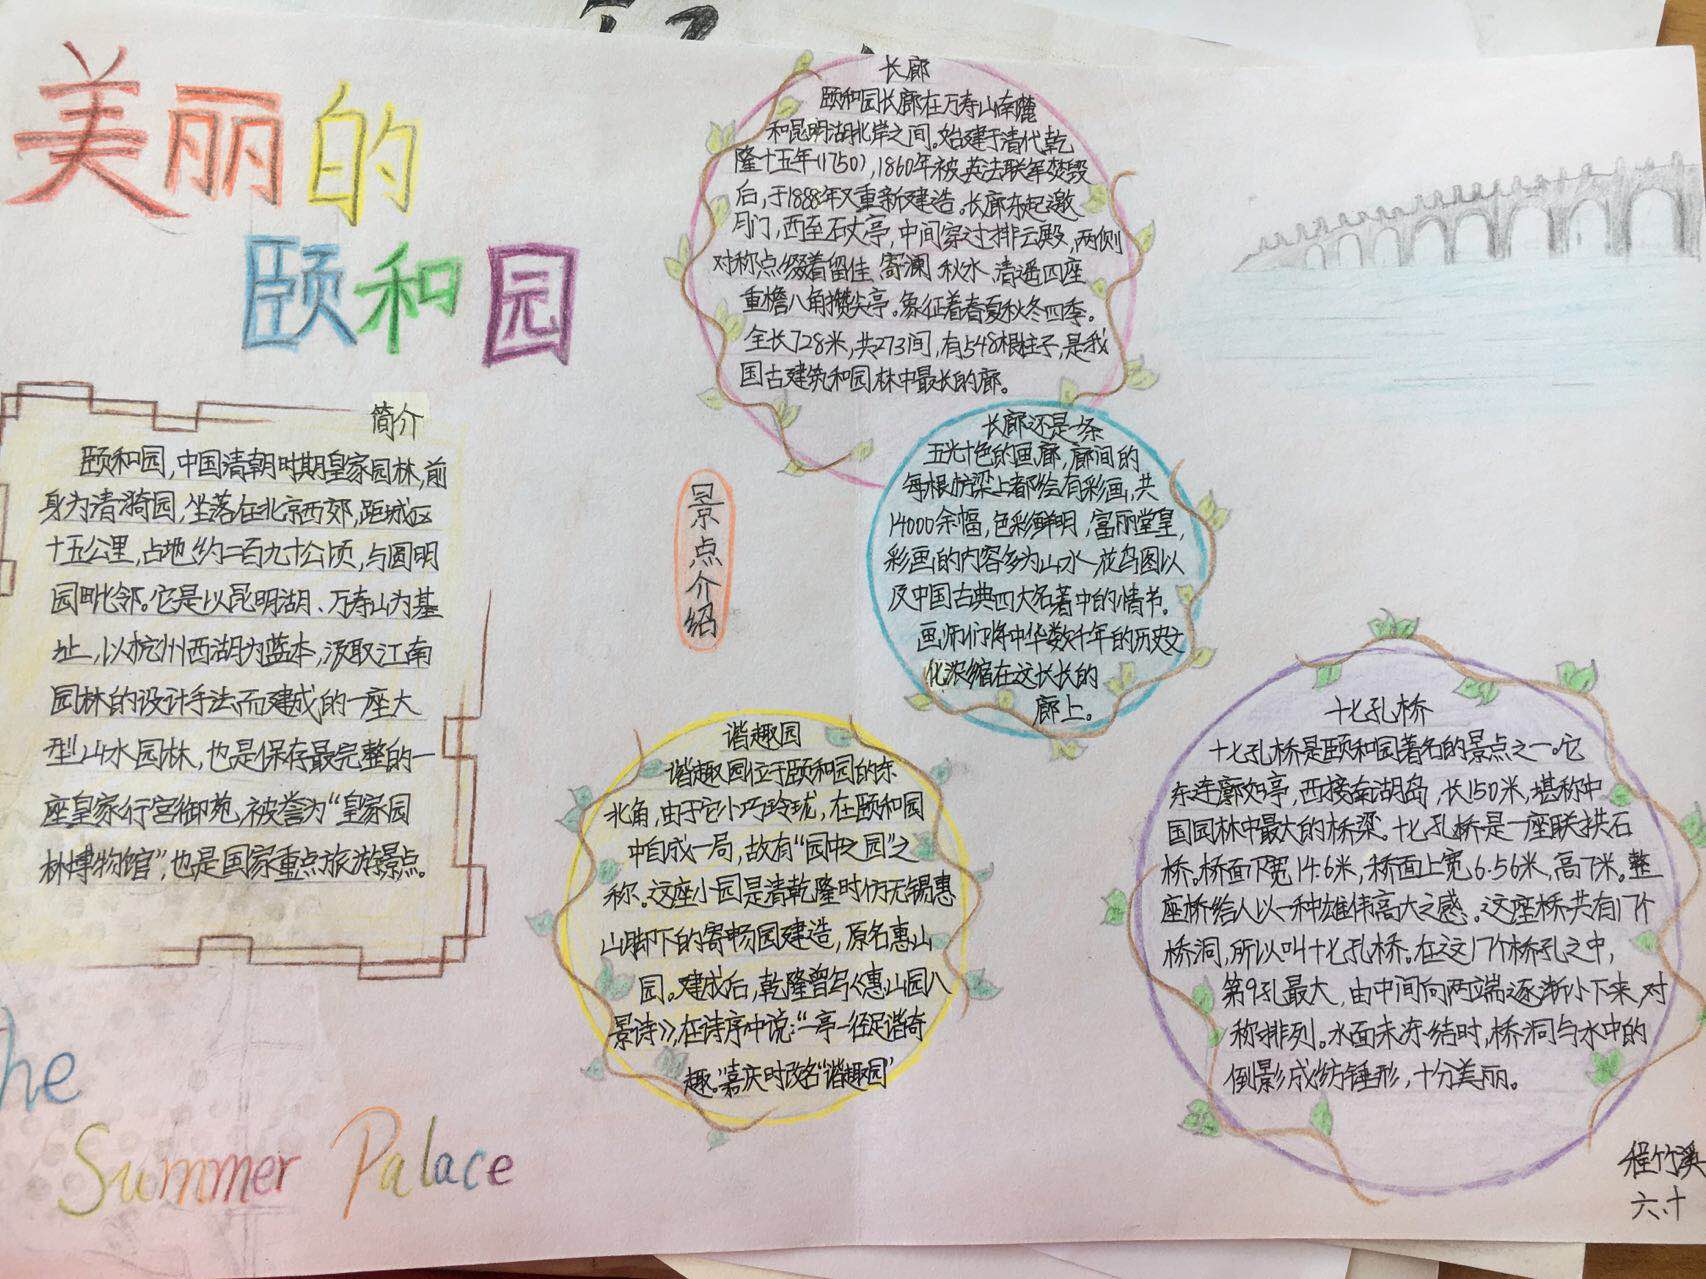 美丽的
颐和园
简介
颐和园,中国清朝时期皇家园林,前
身为清漪园,坐落在北京西郊,距城区
十五公里,占地约二百九十公顷,与圆明
园毗邻。它是以昆明湖、万寿山为基
址,以杭州西湖为蓝本,汲取江南
园林的设计手法而建成的一座大
型山水园林,也是保存最完整的一
座皇家行宫御苑,被誉为“皇家园
林博物馆”,也是国家重点旅游景点。
The
Summer Palace
景点介绍
长廊
颐和园长廊在万寿山南麓
和昆明湖北岸之间。始建于清代乾
隆十五年(1750),1860年被英法联军焚毁
后,于1888年又重新建造。长廊东起邀
月门,西至石丈亭,中间穿过排云殿,两侧
对称点缀着留佳、寄澜、秋水、清遥四座
重檐八角攒尖亭。象征着春夏秋冬四季。
全长728米,共273间,有548根柱子,是我
国古建筑和园林中最长的廊。
长廊还是一条
五光十色的画廊,廊间的
每根枋梁上都绘有彩画,共
14000余幅,色彩鲜明,富丽堂皇,
彩画的内容多为山水、花鸟图以
及中国古典四大名著中的情节。
画师们将中华数千年的历史文
化浓缩在这长长的
廊上。
谐趣园
谐趣园位于颐和园的东
北角,由于它小巧玲珑,在颐和园
中自成一局,故有“园中之园”之
称。这座小园是清乾隆时仿无锡惠
山脚下的寄畅园建造,原名惠山
园。建成后,乾隆曾写《惠山园八
景诗》,在诗序中说:“一亭一径足谐奇
趣。”嘉庆时改名“谐趣园”
十七孔桥
十七孔桥是颐和园著名的景点之一。它
东连廓如亭,西接南湖岛,长150米,堪称中
国园林中最大的桥梁。十七孔桥是一座联拱石
桥。桥面下宽14.6米,桥面上宽6.56米,高7米。整
座桥给人以一种雄伟高大之感。这座桥共有17个
桥洞,所以叫十七孔桥。在这17个桥孔之中,
第9孔最大,由中间向两端逐渐小下来,对
称排列。水面未冻结时,桥洞与水中的
倒影成纺锤形,十分美丽。
程竹溪
六.十